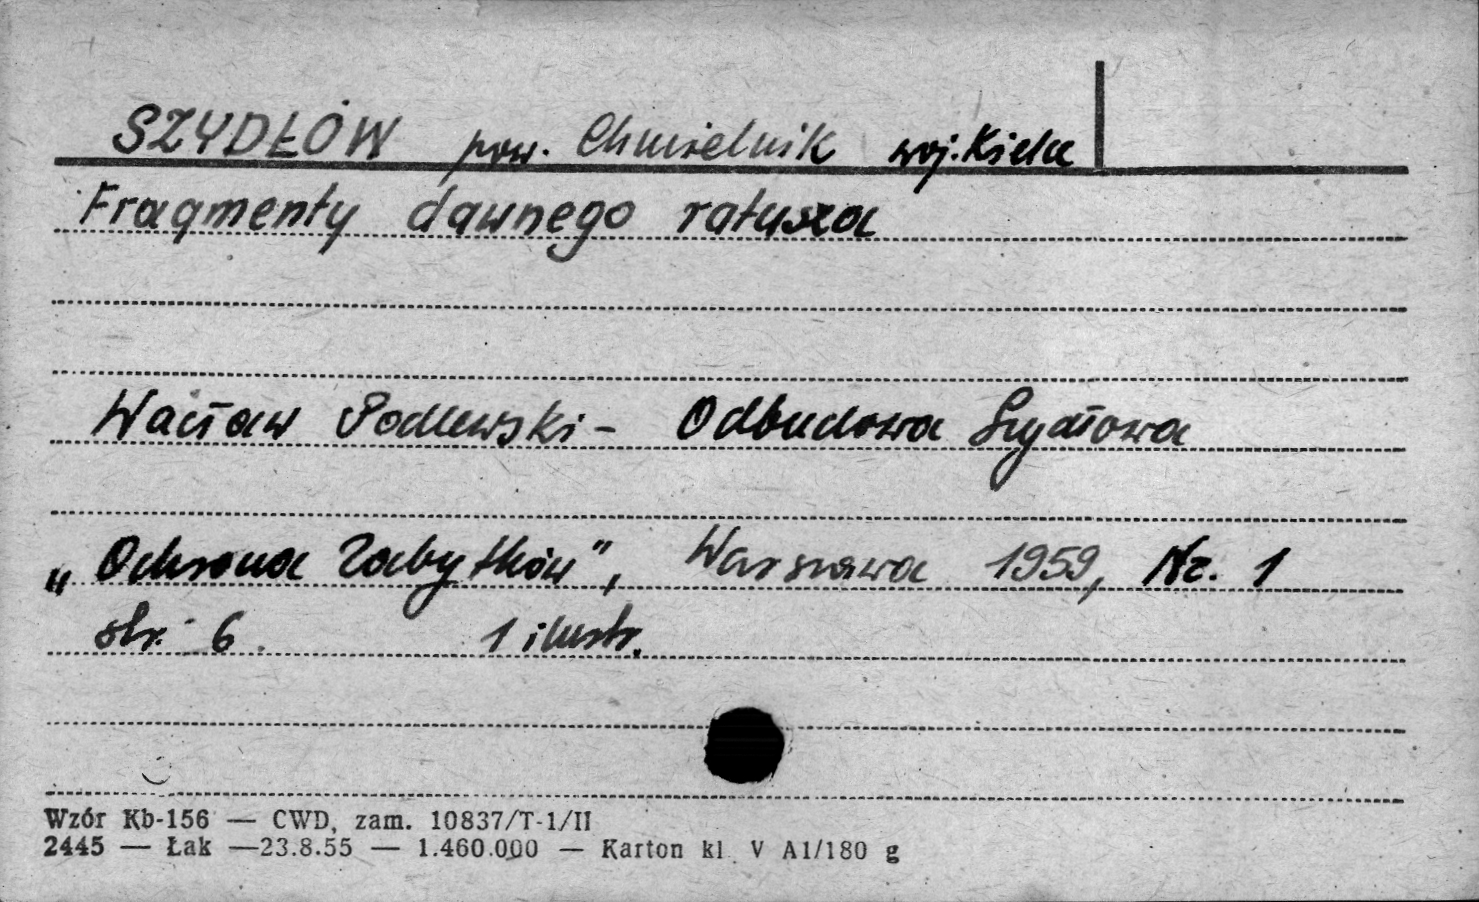 SZYDŁÓW pow. Chmielnik woj. Kielce
Fragmenty dawnego ratusza
Wacław Podlewski - Odbudowa Szydłowa
„Ochrona Zabytków", Warszawa 1959, Nr. 1
str. 6. 1 ilustr.
Wzór Kb-156 — CWD, zam. 10837/T-1/II
2445 — Łak —23.8.55 — 1.460.000 — Karton kl. V A1/180 g